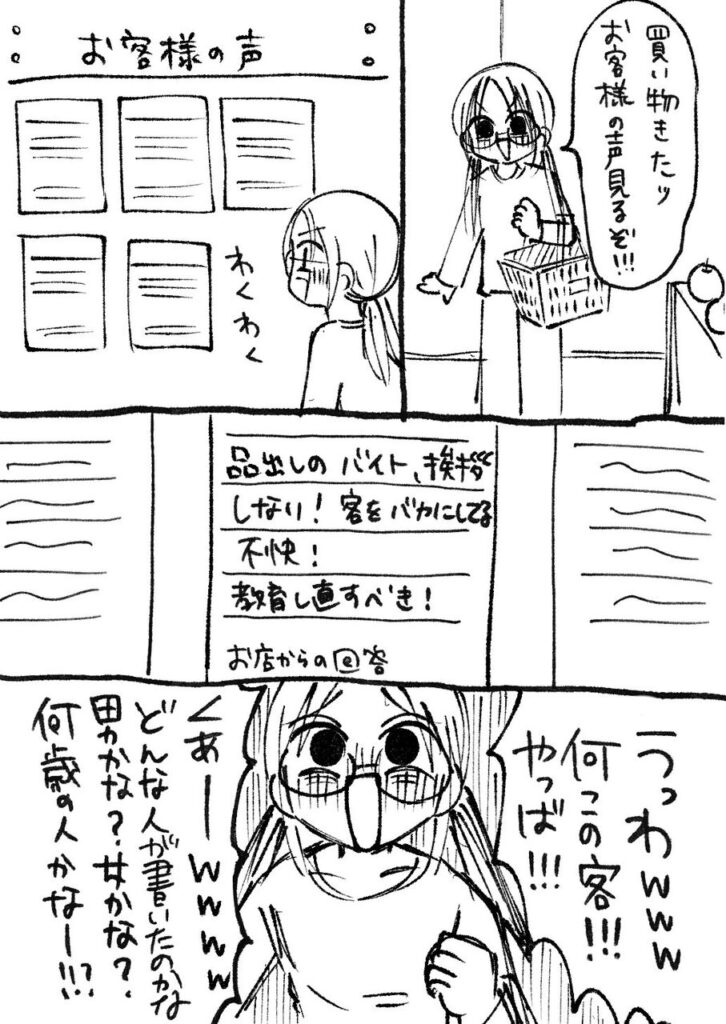 買い物きたッ
お客様の声見るぞ!!!
お客様の声
わくわく
品出しのバイト、挨拶
しない！客をバカにしてる
不快！
教育し直すべき！
お店からの回答
うっわwww
何この客!!!
やっば!!!
くぁーwwww
どんな人が書いたのかな
男かな？女かな？
何歳の人かなー!!?